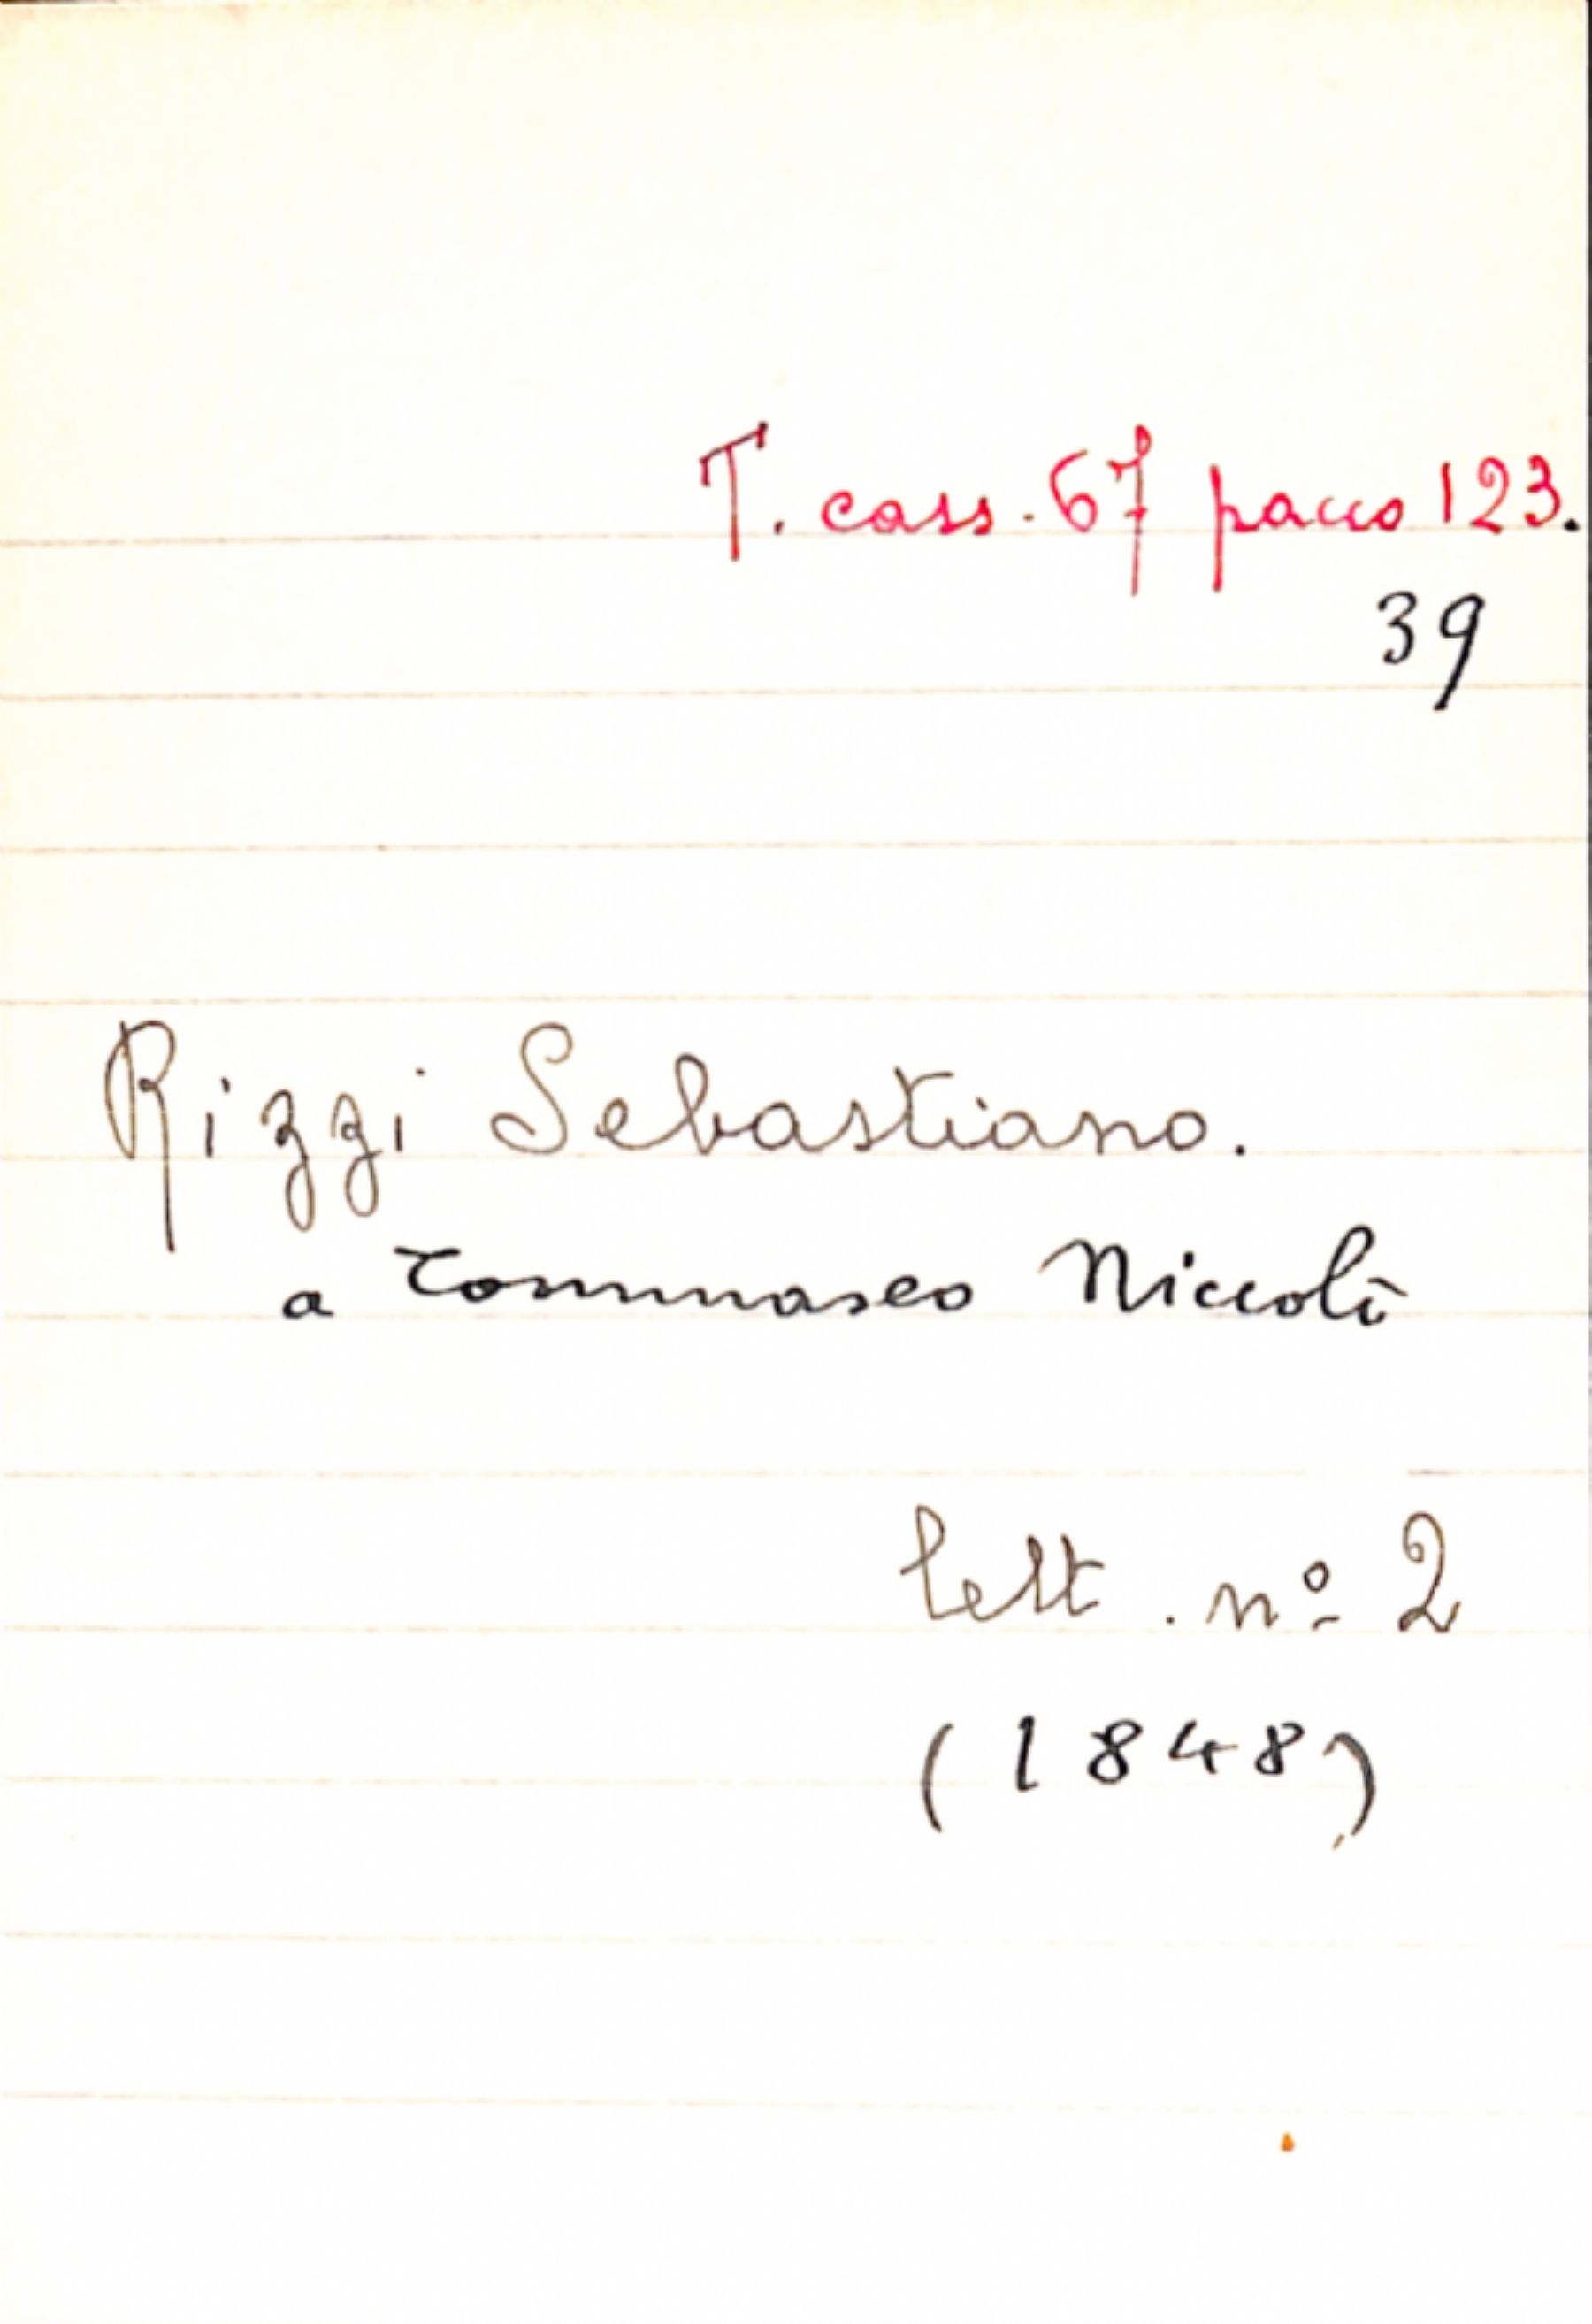 T. cass. 67 pacco 123.
39
Rizzi Sebastiano.
a Tommaseo Niccolò
lett. nº 2
(1848)